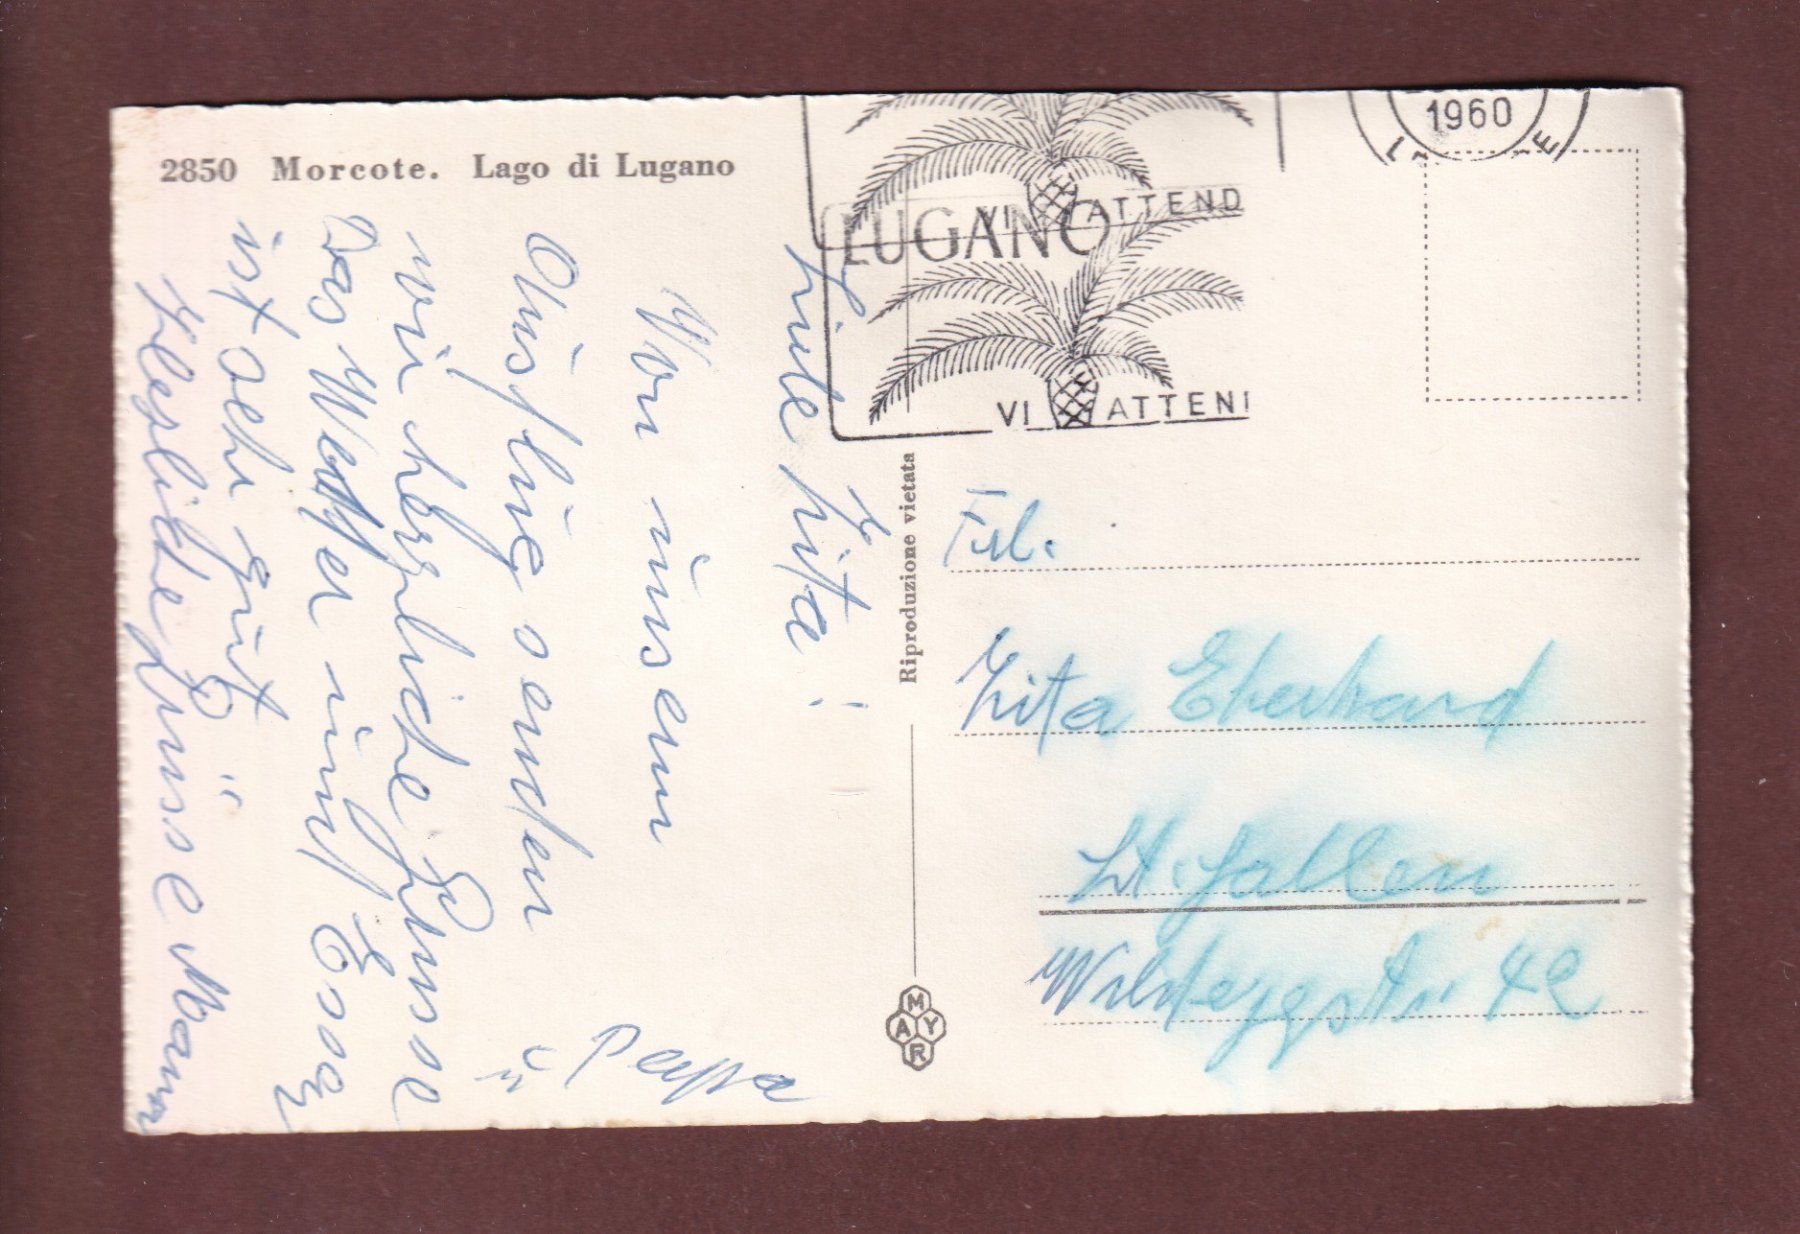 2850 Morcote. Lago di Lugano
Liebe Zita!
Von unserm
Ausflug senden
wir herzliche Grüsse
Das Wetter und Essen
ist sehr gut
Herzliche Grüsse Mama
u Pappa
LUGANO
VI ATTEND
VI ATTENI
1960
Riproduzione vietata
MAYR
Frl.
Zita Eberhard
St. Gallen
Wildeggstr 42